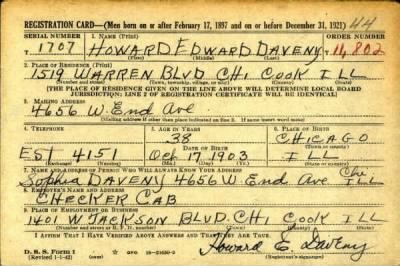 REGISTRATION CARD—(Men born on or after February 17, 1897 and on or before December 31, 1921) 44
SERIAL NUMBER 1. NAME (Print) ORDER NUMBER
T 1707 HOWARD EDWARD DAVENY T 11,802
(First) (Middle) (Last)
2. PLACE OF RESIDENCE (Print)
1519 WARREN BLVD CHI COOK ILL
(Number and street) (Town, township, village, or city) (County) (State)
[THE PLACE OF RESIDENCE GIVEN ON THE LINE ABOVE WILL DETERMINE LOCAL BOARD
JURISDICTION; LINE 2 OF REGISTRATION CERTIFICATE WILL BE IDENTICAL]
3. MAILING ADDRESS
4656 W. End Ave
[Mailing address if other than place indicated on line 2. If same insert word same]
4. TELEPHONE 5. AGE IN YEARS 6. PLACE OF BIRTH
38 CHICAGO
DATE OF BIRTH (Town or county)
EST 4151 Oct 17 1903 ILL
(Exchange) (Number) (Mo.) (Day) (Yr.) (State or country)
7. NAME AND ADDRESS OF PERSON WHO WILL ALWAYS KNOW YOUR ADDRESS
Sophia DAVENY 4656 W End Ave Chi ILL
8. EMPLOYER'S NAME AND ADDRESS
CHECKER CAB
9. PLACE OF EMPLOYMENT OR BUSINESS
1401 W. JACKSON BLVD. CHI COOK ILL
(Number and street or R. F. D. number) (Town) (County) (State)
I AFFIRM THAT I HAVE VERIFIED ABOVE ANSWERS AND THAT THEY ARE TRUE.
D. S. S. Form 1
(Revised 1-1-42) GPO Howard E. Daveny
(Registrant's signature)